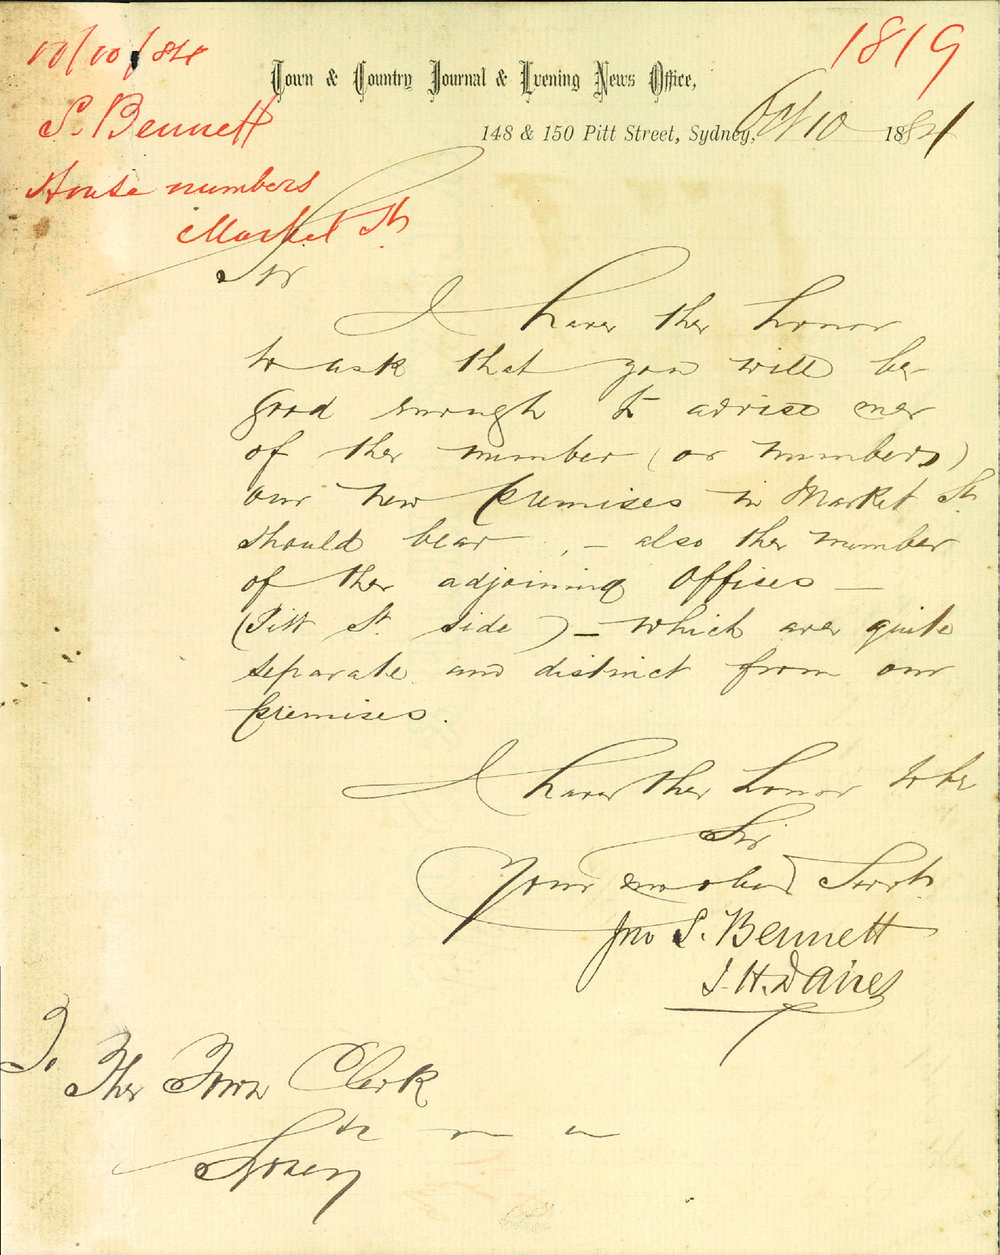 10/10/84
1819
Town & Country Journal & Evening News Office,
S. Bennett
148 & 150 Pitt Street, Sydney, Oct 10 1884
House numbers
Market St
Sir
I have the honor
to ask that you will be
good enough to advise me
of the number (or numbers)
our new premises in Market St.
should bear, - also the number
of the adjoining Offices -
(Pitt St. side) - which are quite
separate and distinct from our
premises.
I have the honor to be
Sir
Your
Jno S. Bennett
J. H. Davies
To
The Town Clerk
Sydney